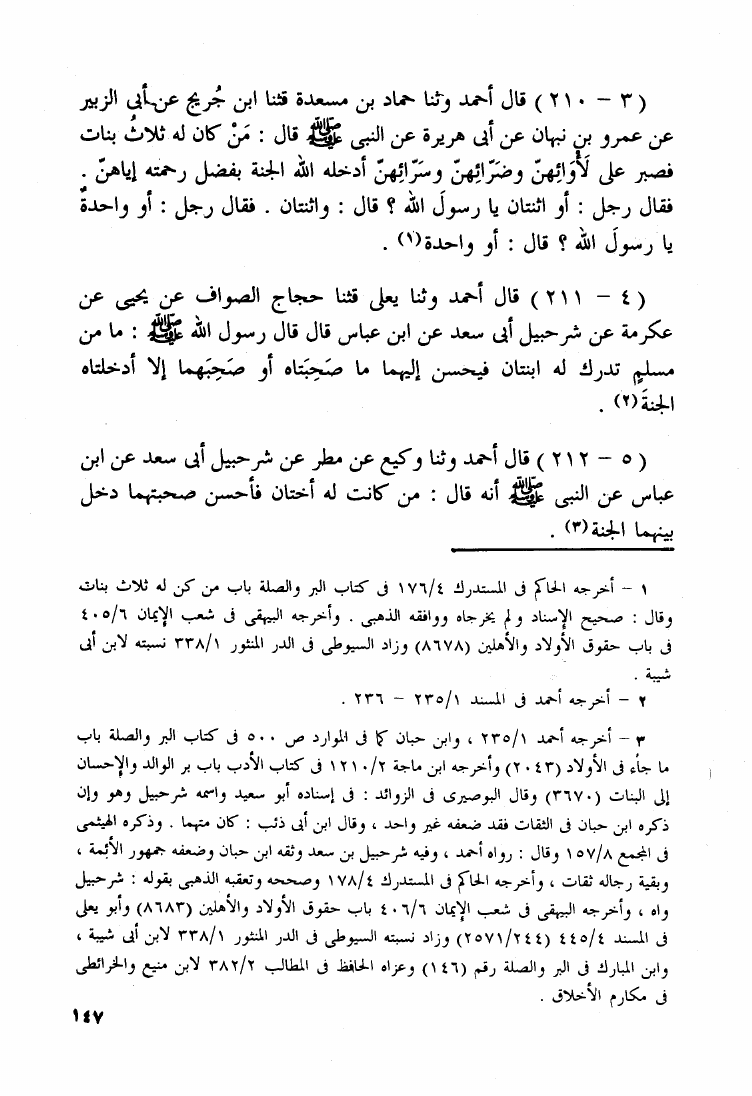 ( ٣ – ٢١٠ ) قال أحمد وثنا حماد بن مسعدة قثنا ابن جُريج عن أبى الزبير
عن عمرو بن نبهان عن أبى هريرة عن النبى ﷺ قال : مَنْ كان له ثلاثُ بنات
فصبر على لَأْوَائِهنّ وضَرّائِهنّ وسَرّائِهنّ أدخله الله الجنة بفضل رحمته إياهنّ .
فقال رجل : أو اثنتان يا رسولَ الله ؟ قال : واثنتان . فقال رجل : أو واحدةٌ
يا رسولَ الله ؟ قال : أو واحدة(١) .
( ٤ – ٢١١ ) قال أحمد وثنا يعلى قثنا حجاج الصواف عن يحيى عن
عكرمة عن شرحبيل أبى سعد عن ابن عباس قال قال رسول الله ﷺ : ما من
مسلمٍ تدرك له ابنتان فيحسن إليهما ما صَحِبَتاه أو صَحِبَهما إلا أدخلتاه
الجنةَ(٢) .
( ٥ – ٢١٢ ) قال أحمد وثنا وكيع عن مطر عن شرحبيل أبى سعد عن ابن
عباس عن النبى ﷺ أنه قال : من كانت له أختان فأحسن صحبتهما دخل
بينهما الجنة(٣) .
١ – أخرجه الحاكم فى المستدرك ١٧٦/٤ فى كتاب البر والصلة باب من كن له ثلاث بنات
وقال : صحيح الإسناد ولم يخرجاه ووافقه الذهبى . وأخرجه البيهقى فى شعب الإيمان ٤٠٥/٦
فى باب حقوق الأولاد والأهلين (٨٦٧٨) وزاد السيوطى فى الدر المنثور ٣٣٨/١ نسبته لابن أبى
شيبة .
٢ – أخرجه أحمد فى المسند ٢٣٥/١ – ٢٣٦ .
٣ – أخرجه أحمد ٢٣٥/١ ، وابن حبان كما فى الموارد ص ٥٠٠ فى كتاب البر والصلة باب
ما جاء فى الأولاد (٢٠٤٣) وأخرجه ابن ماجة ١٢١٠/٢ فى كتاب الأدب باب بر الوالد والإحسان
إلى البنات (٣٦٧٠) وقال البوصيرى فى الزوائد : فى إسناده أبو سعيد واسمه شرحبيل وهو وإن
ذكره ابن حبان فى الثقات فقد ضعفه غير واحد ، وقال ابن أبى ذئب : كان متهما . وذكره الهيثمى
فى المجمع ١٥٧/٨ وقال : رواه أحمد ، وفيه شرحبيل بن سعد وثقه ابن حبان وضعفه جمهور الأئمة ،
وبقية رجاله ثقات ، وأخرجه الحاكم فى المستدرك ١٧٨/٤ وصححه وتعقبه الذهبى بقوله : شرحبيل
واه ، وأخرجه البيهقى فى شعب الإيمان ٤٠٦/٦ باب حقوق الأولاد والأهلين (٨٦٨٣) وأبو يعلى
فى المسند ٤٤٥/٤ (٢٥٧١/٢٤٤) وزاد نسبته السيوطى فى الدر المنثور ٣٣٨/١ لابن أبى شيبة ،
وابن المبارك فى البر والصلة رقم (١٤٦) وعزاه الحافظ فى المطالب ٣٨٢/٢ لابن منيع والخرائطى
فى مكارم الأخلاق .
١٤٧